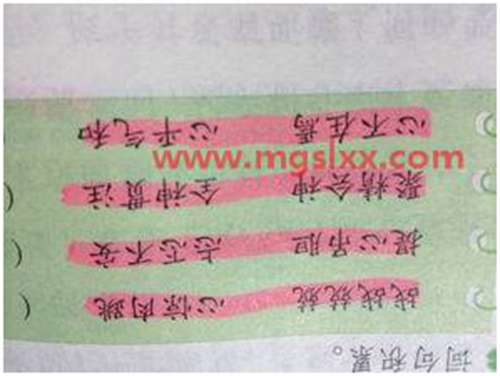 词句积累。
战战兢兢 心惊肉跳 (
提心吊胆 忐忑不安 (
聚精会神 全神贯注 (
心不在焉 心平气和
www.mgslxx.com